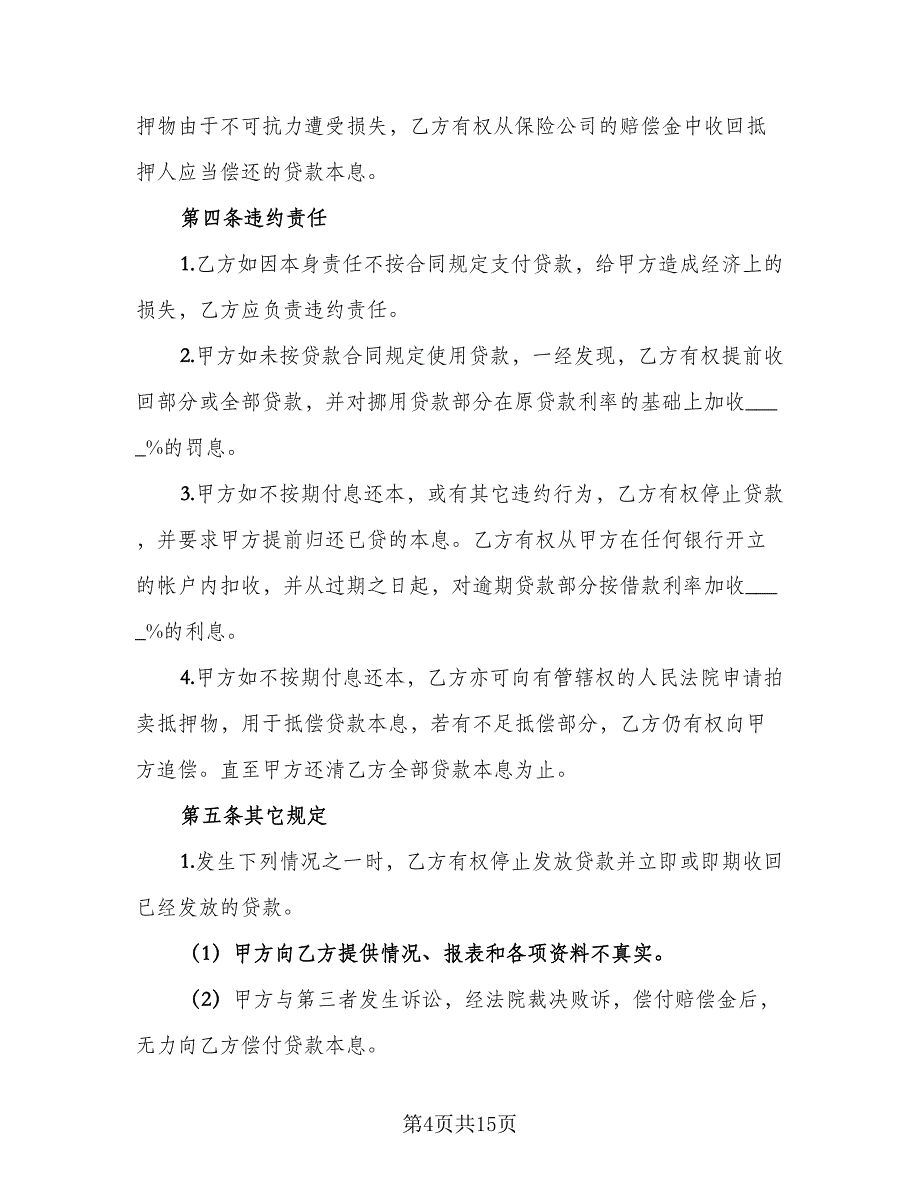 押物由于不可抗力遭受损失，乙方有权从保险公司的赔偿金中收回抵
押人应当偿还的贷款本息。
第四条违约责任
1.乙方如因本身责任不按合同规定支付贷款，给甲方造成经济上的
损失，乙方应负责违约责任。
2.甲方如未按贷款合同规定使用贷款，一经发现，乙方有权提前收
回部分或全部贷款，并对挪用贷款部分在原贷款利率的基础上加收___
_%的罚息。
3.甲方如不按期付息还本，或有其它违约行为，乙方有权停止贷款
，并要求甲方提前归还已贷的本息。乙方有权从甲方在任何银行开立
的帐户内扣收，并从过期之日起，对逾期贷款部分按借款利率加收___
_%的利息。
4.甲方如不按期付息还本，乙方亦可向有管辖权的人民法院申请拍
卖抵押物，用于抵偿贷款本息，若有不足抵偿部分，乙方仍有权向甲
方追偿。直至甲方还清乙方全部贷款本息为止。
第五条其它规定
1.发生下列情况之一时，乙方有权停止发放贷款并立即或即期收回
已经发放的贷款。
（1）甲方向乙方提供情况、报表和各项资料不真实。
（2）甲方与第三者发生诉讼，经法院裁决败诉，偿付赔偿金后，
无力向乙方偿付贷款本息。
第4页共15页